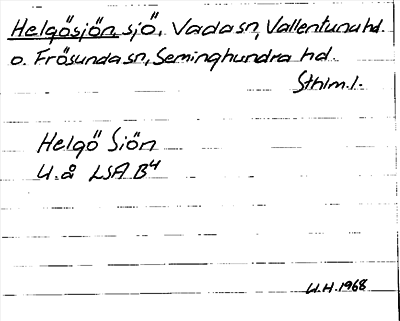 Helgösjön sjö, Vada sn, Vallentuna hd.
o. Frösunda sn, Seminghundra hd.
Sthlm.l.
Helgö Siön
U.å LSA B4
U.H. 1968